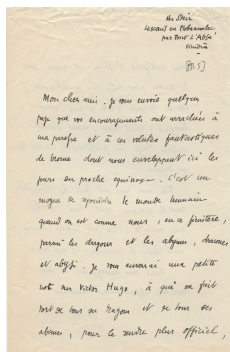 Ker Stéir
Lescouil en Plobannalec
par Pont L'Abbé
Finistère
Mon cher ami. Je vous envoie quelques
pages que vos encouragements ont arrachées à
ma paresse et à ces volutes fantastiques
de brume dont nous enveloppent ici les
jours en proche équinoxe. C'est un
moyen de rejoindre le monde humain
quand on est comme nous, en ce finistère,
parmi les dragons et les abymes, dracones
et abyssi. Je vous enverrai une petite
note sur Victor Hugo, à qui on fait
tort de tous ses dragons et de tous ses
abymes, pour le rendre plus officiel,